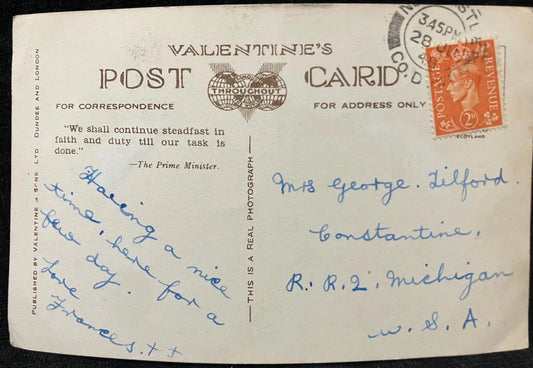 VALENTINE'S
POST CARD
THROUGHOUT
FOR CORRESPONDENCE
FOR ADDRESS ONLY
"We shall continue steadfast in
faith and duty till our task is
done."
—The Prime Minister.
Having a nice
time, here for a
few day.
Love
Frances. ++
PUBLISHED BY VALENTINE & SONS, LTD. DUNDEE AND LONDON
THIS IS A REAL PHOTOGRAPH
3.45 PM
28
CO. D
POSTAGE
REVENUE
2D
SCOTLAND
Mrs George. Tilford.
Constantine,
R. R. 2, Michigan
U. S. A.